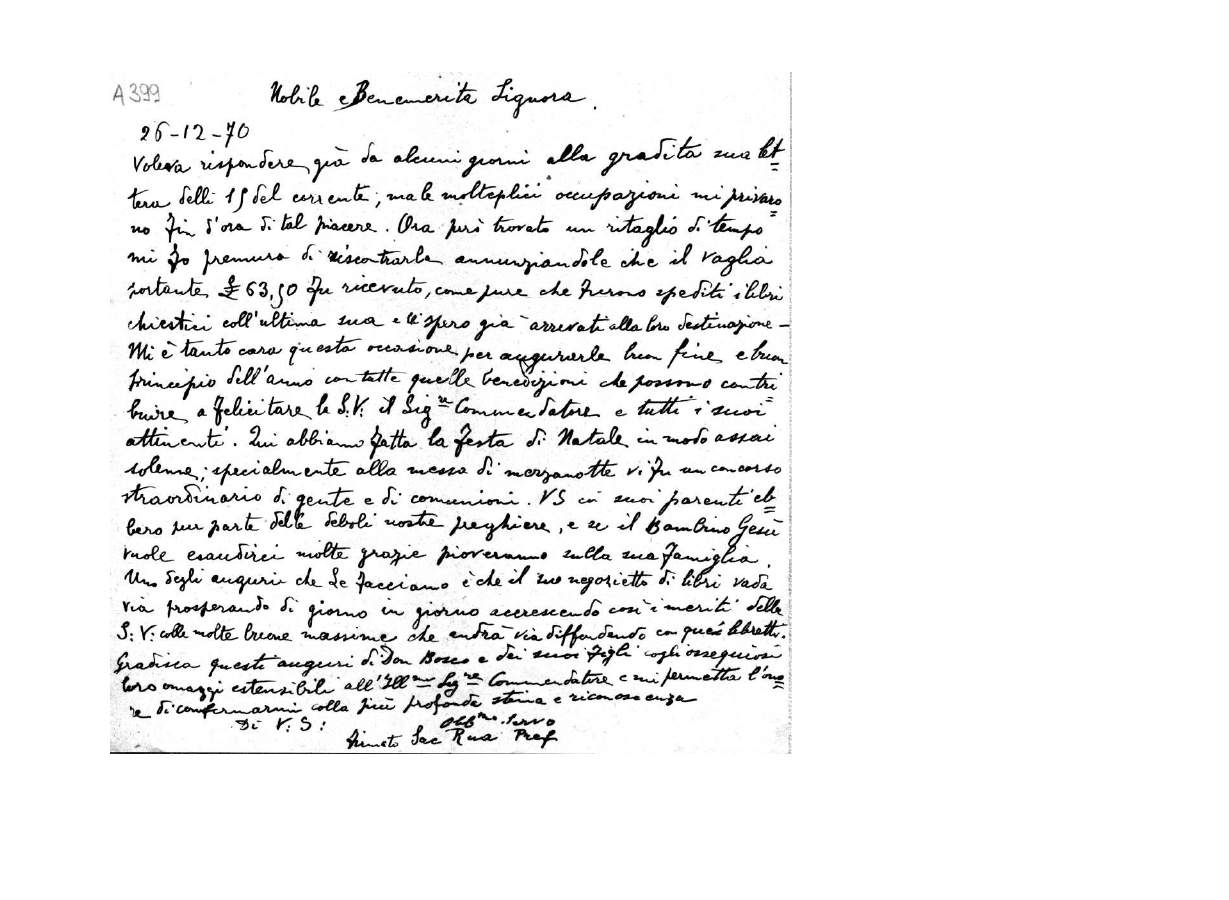 A 399
Nobile e Benemerita Signora.
26-12-70
Voleva rispondere già da alcuni giorni alla gradita sua let=
tera delli 15 del corrente; ma le molteplici occupazioni mi privaro=
no fin d'ora di tal piacere. Ora però trovato un ritaglio di tempo
mi fo premura di riscontrarla annunziandole che il vaglia
portante £ 63,50 fu ricevuto, come pure che furono spediti i libri
chiestici coll'ultima sua e li spero già arrivati alla loro destinazione -
Mi è tanto cara questa occasione per augurarle buon fine e buon
principio dell'anno con tutte quelle benedizioni che possono contri=
buire a felicitare la S.V. il Sigre Commendatore e tutti i suoi
attinenti. Qui abbiamo fatta la festa di Natale in modo assai
solenne; specialmente alla messa di mezzanotte vi fu un concorso
straordinario di gente e di comunioni. VS coi suoi parenti eb=
bero pur parte delle deboli nostre preghiere, e se il Bambino Gesù
vuole esaudirci molte grazie pioveranno sulla sua famiglia.
Uno degli augurii che Le facciamo è che il suo negozietto di libri vada
via prosperando di giorno in giorno accrescendo così i meriti della
S.V. colle molte buone massime che andrà via diffondendo con quei libretti.
Gradisca questi auguri di Don Bosco e dei suoi figli cogli ossequiosi
loro omaggi estensibili all'Illmo Sigre Commendatore e mi permetta l'ono=
re di confermarmi colla più profonda stima e riconoscenza
Di V.S:
Obbmo Servo
Firmato Sac Rua Pref